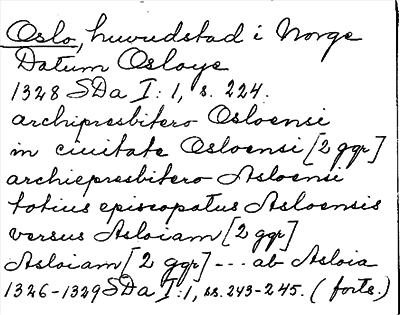 Oslo, huvudstad i Norge
Datum Osloye
1328 SDa I: 1, s. 224.
archipresbitero Osloensi
in ciuitate Osloensi [2 ggr]
archiepresbitero Asloensi
totius episcopatus Asloensis
versus Asloiam [2 ggr]
Asloiam [2 ggr] --- ab Asloia
1326-1329 SDa I:1, ss. 243-245. (forts.)